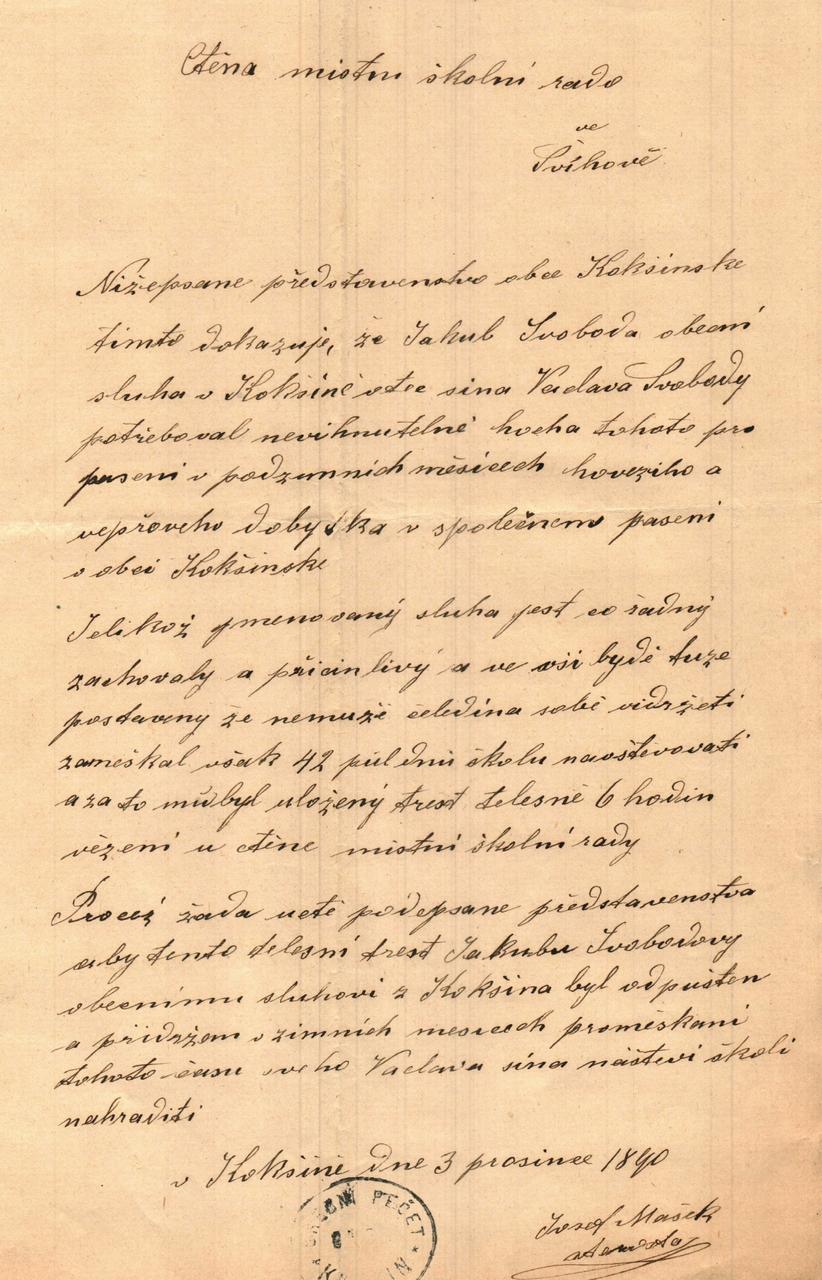 Ctěna mistni školní rado
ve
Švihově
Nižepsane představenstvo obce Kokšinske
timto dokazuje, že Jakub Svoboda obecní
sluha v Kokšině otec sina Vaclava Svobody
potřeboval nevihnutelně hocha tohoto pro
paseni v podzimních měsicech hoveziho a
vepřoveho dobytka v společnem paseni
v obci Kokšinske
Jelikož jmenovaný sluha jest co řadný
zachovaly a přičinlivý a ve vši bydě tuze
postaveny že nemuže čeledina sobě vidržeti
zameškal však 42 půl dnů školu navštěvovati
a za to mu byl uložený trest tělesně 6 hodin
vězení u ctěne mistní školní rady
Pročež žada uctě podepsane představenstva
aby tento tělesní trest Jakubu Svobodovy
obecnimu sluhovi z Kokšina byl odpuštěn
a přidržem v zimních mesicech proměškaní
tohoto času sveho Vaclava sina náštěvi školi
nahraditi
v Kokšině dne 3 prosince 1890
Josef Mašek
starosta
OBECNÍ PEČET